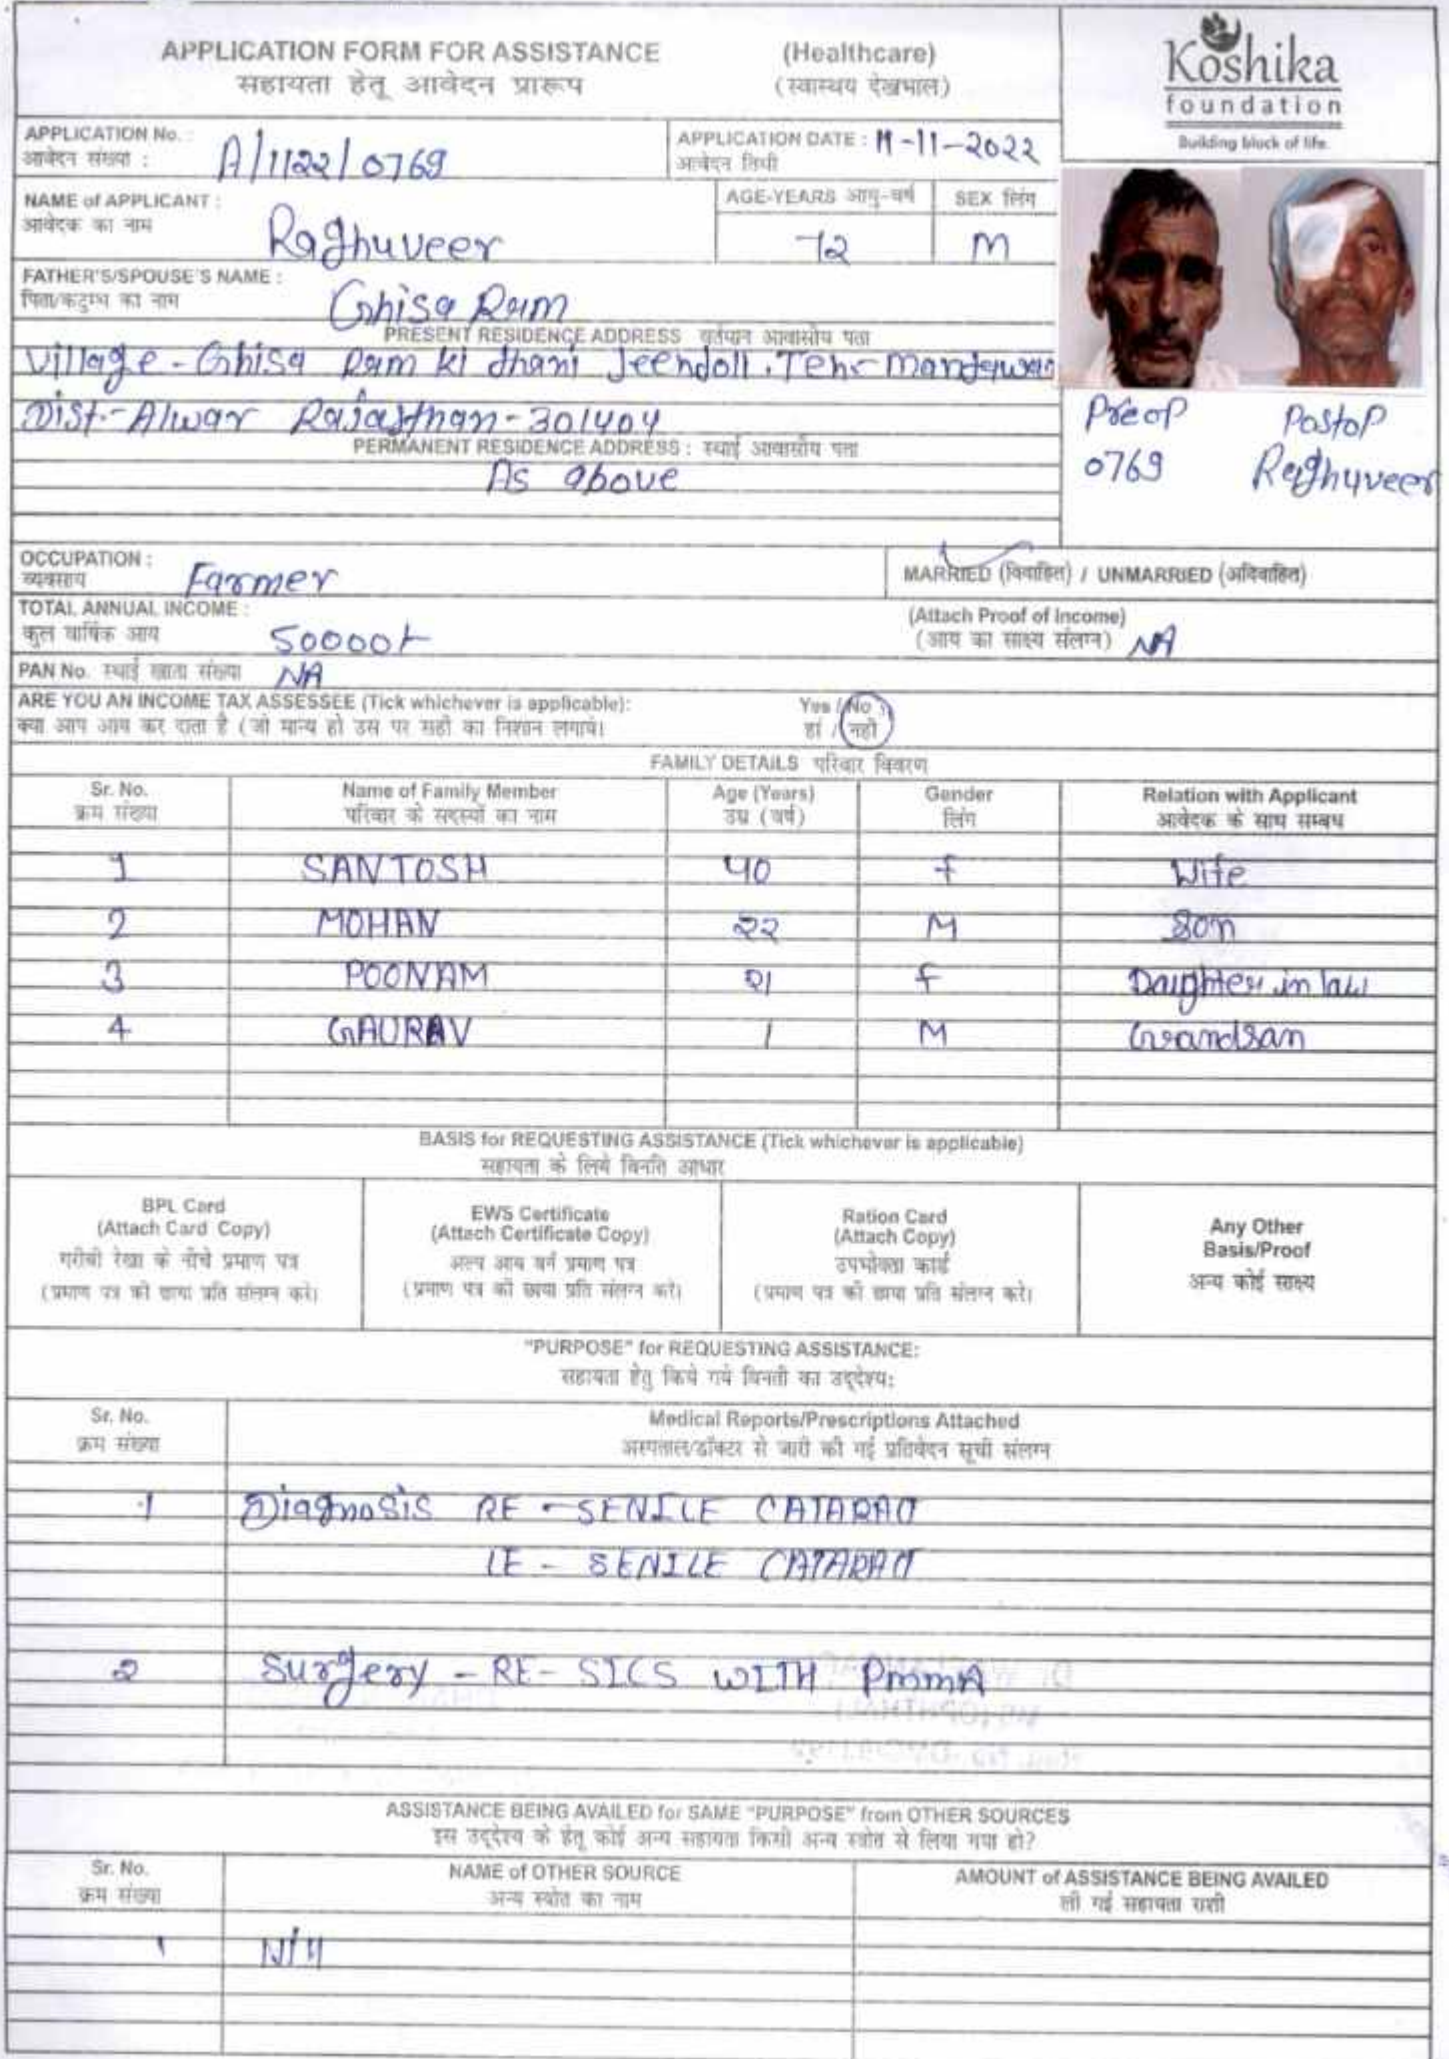 APPLICATION FORM FOR ASSISTANCE (Healthcare)
सहायता हेतू आवेदन प्रारूप (स्वास्थय देखभाल)
Koshika
foundation
Building block of life.
APPLICATION No. : A/1122/0769
आवेदन संख्या :
APPLICATION DATE : 11-11-2022
आवेदन तिथी
NAME of APPLICANT : Raghuveer
आवेदक का नाम
AGE-YEARS आयु-वर्ष 72
SEX लिंग M
FATHER'S/SPOUSE'S NAME : Ghisa Ram
पिता/कटुम्ब का नाम
PRESENT RESIDENCE ADDRESS वर्तमान आवासीय पता
Village - Ghisa Ram ki dhani Jeendoli, Teh-
Dist.- Alwar Rajasthan - 301404
PERMANENT RESIDENCE ADDRESS : स्थाई आवासीय पता
As above
Preop Postop
0769 Raghuveer
OCCUPATION : Farmer
व्यवसाय
MARRIED (विवाहित) / UNMARRIED (अविवाहित)
TOTAL ANNUAL INCOME : 50000/-
कुल वार्षिक आय
(Attach Proof of Income)
(आय का साक्ष्य संलग्न) NA
PAN No. स्थाई खाता संख्या NA
ARE YOU AN INCOME TAX ASSESSEE (Tick whichever is applicable): Yes / No
क्या आप आय कर दाता है (जो मान्य हो उस पर सही का निशान लगाये। हां / नही
FAMILY DETAILS परिवार विवरण
Sr. No. Name of Family Member Age (Years) Gender Relation with Applicant
क्रम संख्या परिवार के सदस्यों का नाम उम्र (वर्ष) लिंग आवेदक के साथ सम्बध
1 SANTOSH 40 F Wife
2 MOHAN 22 M Son
3 POONAM 21 F Daighter in law
4 GAURAV 1 M Grandsan
BASIS for REQUESTING ASSISTANCE (Tick whichever is applicable)
सहायता के लिये विनति आधार
BPL Card
(Attach Card Copy)
गरीबी रेखा के नीचे प्रमाण पत्र
(प्रमाण पत्र की छाया प्रति संलग्न करे।
EWS Certificate
(Attach Certificate Copy)
अल्प आय वर्ग प्रमाण पत्र
(प्रमाण पत्र की छाया प्रति संलग्न करे।
Ration Card
(Attach Copy)
उपभोक्ता कार्ड
(प्रमाण पत्र की छाया प्रति संलग्न करे।
Any Other
Basis/Proof
अन्य कोई साक्ष्य
"PURPOSE" for REQUESTING ASSISTANCE:
सहायता हेतु किये गये विनती का उद्देश्य:
Sr. No. Medical Reports/Prescriptions Attached
क्रम संख्या अस्पताल/डॉक्टर से जारी की गई प्रतिवेदन सूची संलग्न
1 Diagnosis RE - SENILE CATARACT
LE - SENILE CATARACT
2 Surgery - RE - SICS WITH PMMA
ASSISTANCE BEING AVAILED for SAME "PURPOSE" from OTHER SOURCES
इस उद्देश्य के हेतू कोई अन्य सहायता किसी अन्य स्त्रोत से लिया गया हो?
Sr. No. NAME of OTHER SOURCE AMOUNT of ASSISTANCE BEING AVAILED
क्रम संख्या अन्य स्त्रोत का नाम ली गई सहायता राशी
1 N/A